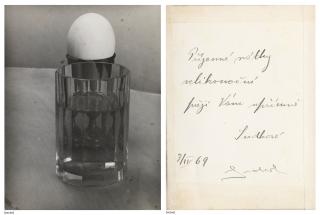 Příjemné svátky
velikonoční
přeji Vám upřímně
Sudkové
7/IV 69